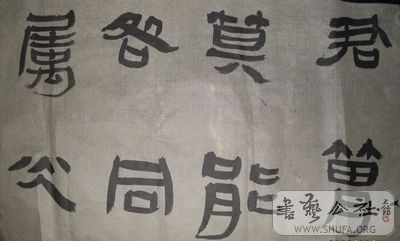 君
莫能
各同
属
書藝公社
WWW.SHUFA.ORG